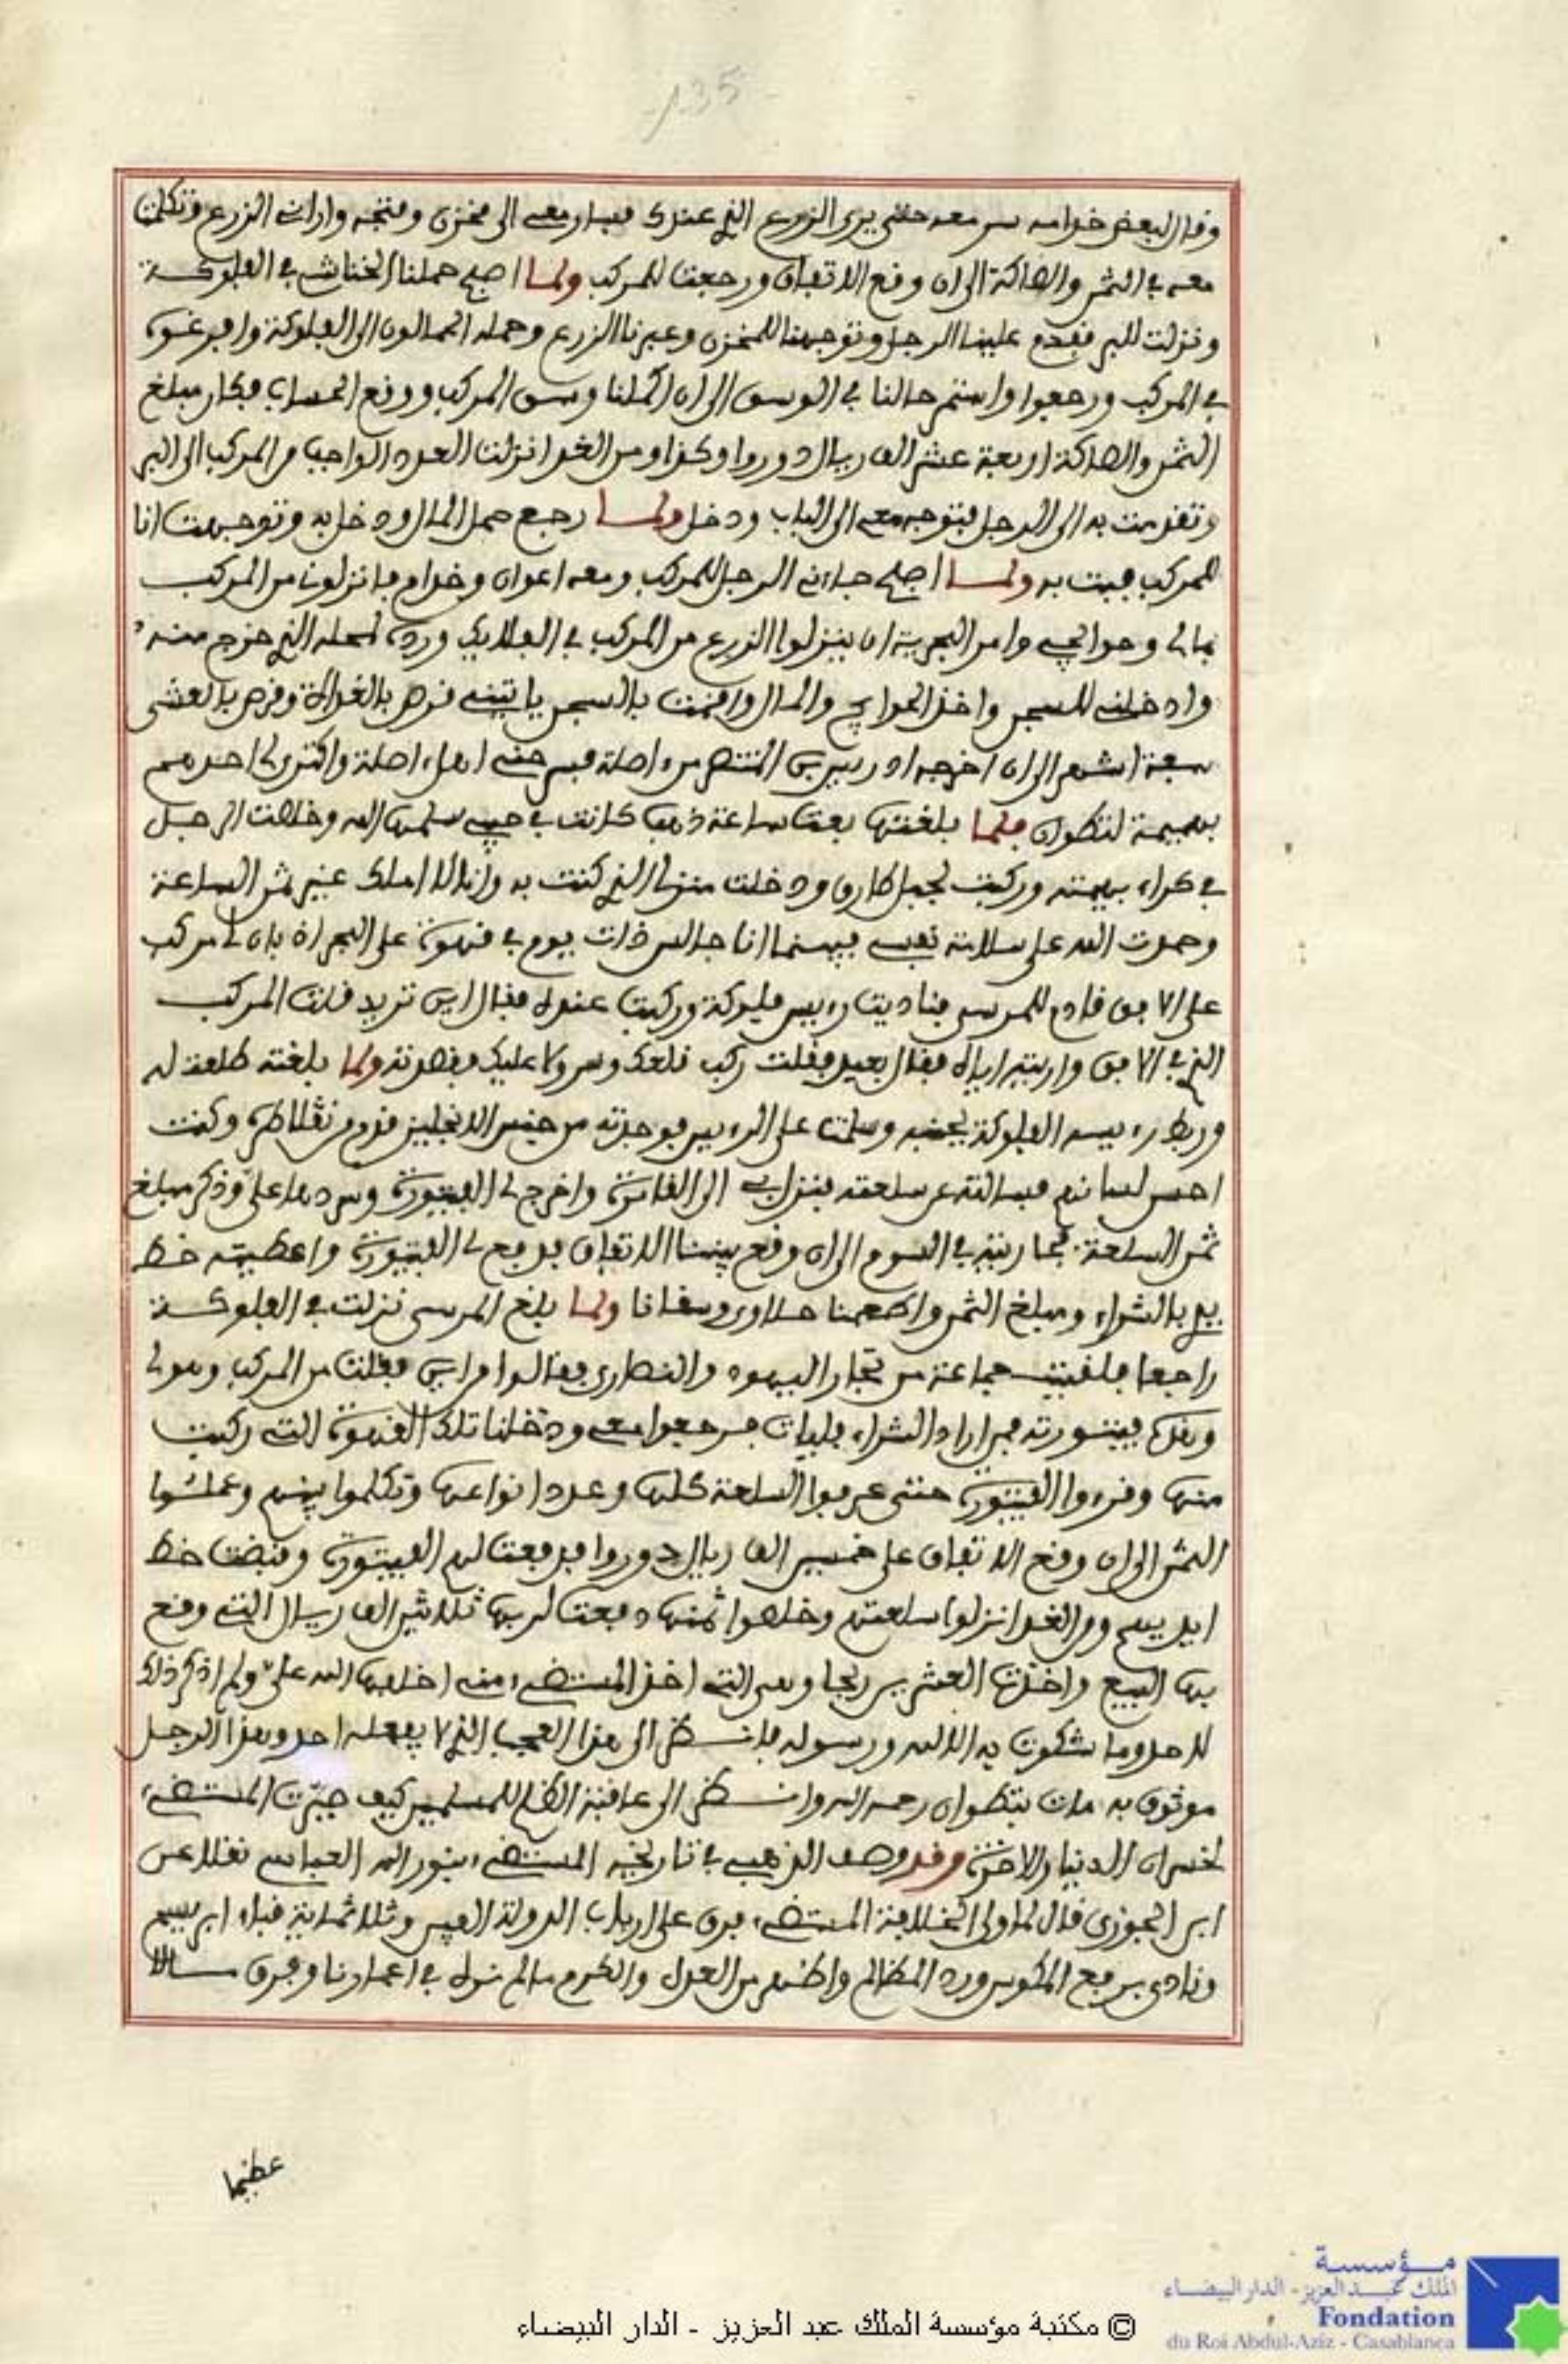 -135-
وقال لبعض خدامه سر معه حتى يرى الزرع الذي عندك فسار معي الى مخزن وفتحه واراني الزرع وتكلمت
معه في الثمن والصاكة الى ان وقع الاتفاق ورجعت للمركب ولما اصبح حملنا الخناش في الفلوكة
ونزلت للبر فقدم علينا الرجل وتوجهنا للمخزن وعبرنا الزرع وحمله الحمالون الى الفلوكة وافرغوه
في المركب ورجعوا واستمر حالنا في الوسق الى ان اكملنا وسق المركب ووقع الحساب فكان مبلغ
الثمن والصاكة اربعة عشر الف ريال دورو او كذا ومن الغد انزلت العدد الواجب من المركب الى البر
وتقدمت به الى الرجل فتوجه معي الى الباب ودخل ولما رجع حمل المال ودخل به وتوجهت انا
للمركب فبت به ولما اصبح جاءني الرجل للمركب ومعه اعوان وخدام فانزلوني من المركب
بمالي وحوائجي وامر البحرية ان ينزلوا الزرع من المركب في الفلايك ورده لمحله الذي خرج منه
وادخلني للسجن واخذ الحوايج والمال واقمت بالسجن ياتيني قرص بالغداة وقرص بالعشي
سبعة اشهر الى ان اخرجه ا و ر يس المنتصر من اصلة فسرحني اهل اصلة واكترى لي احدهم
بهيمة لتطوان فلما بلغتها بعت ساعة ذهب كانت في جيبي سلمها الله وخلصت الرجل
في كراء بهيمته وركبت لجبل طارق ودخلت منزلي الذي كنت به وانا لا املك غير ثمن الساعة
وحمدت الله على سلامة نفسي فبينما انا جالس ذات يوم في قهوة على البحر اذ بان لي مركب
على الافق قادم للمرسى فناديت رءيس فلوكة وركبت عنده فقال اين تريد قلت المركب
الذي في الافق واريته اياه فقال بعيد فقلت ركب قلعك وسر ولا عليك فقصدته ولما بلغته طلعت له
وربط رءيس الفلوكة بجنبه وسلمت على الرءيس فوجدته من جنس الانجليز قدم من نقلاطره وكنت
احسن لسانهم فسالته عن سلعته فنزل بي الى القامرة واخرج لي الفيتورة وسردها علي وذكر مبلغ
ثمن السلعة فجاريته في السوم الى ان وقع بيننا الاتفاق فدفع لي الفيتورة واعطيته خط
يدي بالشراء ومبلغ الثمن واطعمنا حلاوى وسقانا ولما بلغ المرسى نزلت في الفلوكة
راجعا فلقيت جماعة من تجار اليهود والنصارى فقالوا من اين فقلت من المركب وهو لي
وهذه فيتورته فمن اراد الشراء فليات فرجعوا معي ودخلنا تلك القهوة التي ركبت
منها وقرءوا الفيتورة حتى عرفوا السلعة كلها وعدد انواعها وتكلموا بينهم وعملوا
الثمن الى ان وقع الاتفاق على خمسين الف ريال دورو فدفعت لهم الفيتورة وقبضت خط
ايديهم ومن الغد انزلوا سلعتهم وخلصوا ثمنها دفعت لربها ثلاثين الف ريال التي وقع
بها البيع واخذت العشرين ربحا وهي التي اخذ المستضيء مني اخلفها الله علي ولم اذكر ذلك
لاحد وما شكوت به الا لله ورسوله فانظر الى هذا العجب الذي لا يفعله احد وهذا الرجل
موثوق به مات بتطوان رحمه الله وانظر الى عاقبة الظلم للمسلمين كيف جرت المستضيء
لخسران الدنيا والاخرة وقد وصف الذهبي في تاريخه المستضيء بنور الله العباسي نقلا عن
ابن الجوزي قال لما ولي الخلافة المستضيء فرق على ارباب الدولة الفين وثلاثماية قباء ابريسم
ونادى برفع المكوس ورد المظالم واظهر من العدل والكرم ما لم نره في اعمارنا وفرق مالا
عظيما
مؤسسة
الملك عبد العزيز - الدار البيضاء
Fondation
du Roi Abdul-Aziz - Casablanca
© مكتبة مؤسسة الملك عبد العزيز - الدار البيضاء